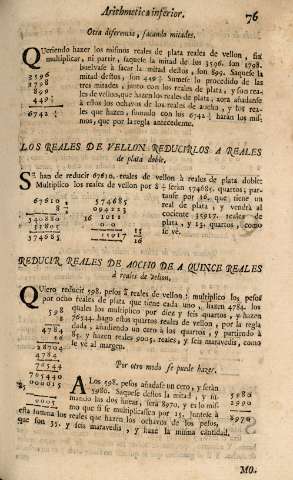 Arithmetica inferior.
76
Otra diferencia, sacando mitades.
QUeriendo hazer los mismos reales de plata reales de vellon, sin
multiplicar, ni partir, saquese la mitad de los 3596. son 1798.
buelvase à sacar la mitad destos, son 899. Saquese la
mitad destos, son 449 ½ Sumese lo procedido de las
tres mitades, junto con los reales de plata, y son rea-
les de vellon, que hazen los reales de plata, aora añadase
à estos los ochavos de los reales de aocho, y los rea-
les que hazen, sumado con los 6742 ½ haràn los mis-
mos, que por la regla antecedente.
3596
1798
899
449 ½
6742 ½
LOS REALES DE VELLON REDUCIRLOS A REALES
de plata doble.
SE han de reducir 67610. reales de vellon à reales de plata doble:
Multiplico los reales de vellon por 8 ½ seràn 574685. quartos; par-
tanse por 36. que tiene un
real de plata, y vendrà al
cociente 15917. reales de
plata, y 15. quartos, como
se vè.
67610
8
540880
33805
574685
574685
15917
REDUCIR REALES DE AOCHO DE A QUINCE REALES
à reales de vellon.
QUiero reducir 598. pesos à reales de vellon; multiplico los pesos
por ocho reales de plata que tiene cada uno, hazen 4784. los
quales los multiplico por diez y seis quartos, y hazen
76544. hago estos quartos reales de vellon, por la regla
dada, añadiendo un cero à los quartos, y partiendo à
85. y hazen reales 9005. reales, y seis maravedis, como
se vè al margen.
598
8
4784
16
28704
4784
76544
765440
Por otro modo se puede hazer.
A Los 598. pesos añadase un cero, y seràn
5980. Saquese destos la mitad, y su-
mando las dos lineas, serà 8970. y es lo mis-
mo que si se multiplicasse por 15. Juntese à
esta suma los reales que hazen los ochavos de los pesos,
que son 35. y seis maravedis, y haze la misma cantidad.
5980
2990
8970
MO.